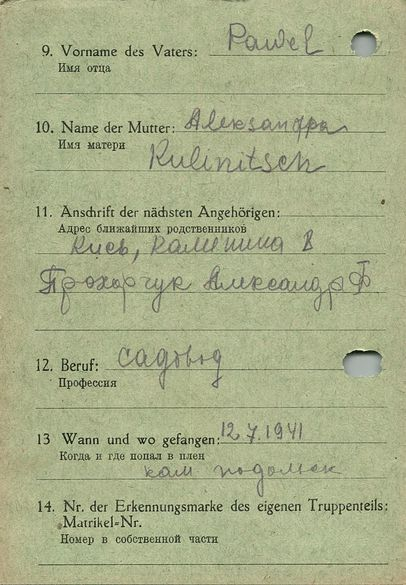 9. Vorname des Vaters: Pawel
Имя отца
10. Name der Mutter: Aleksandра
Имя матери
Kulinitsch
11. Anschrift der nächsten Angehörigen:
Адрес ближайших родственников
8
Прохорчук Александр Ф
12. Beruf: садовод
Профессия
13 Wann und wo gefangen: 12.7.1941
Когда и где попал в плен
кам подольск
14. Nr. der Erkennungsmarke des eigenen Truppenteils:
Matrikel=Nr.
Номер в собственной части